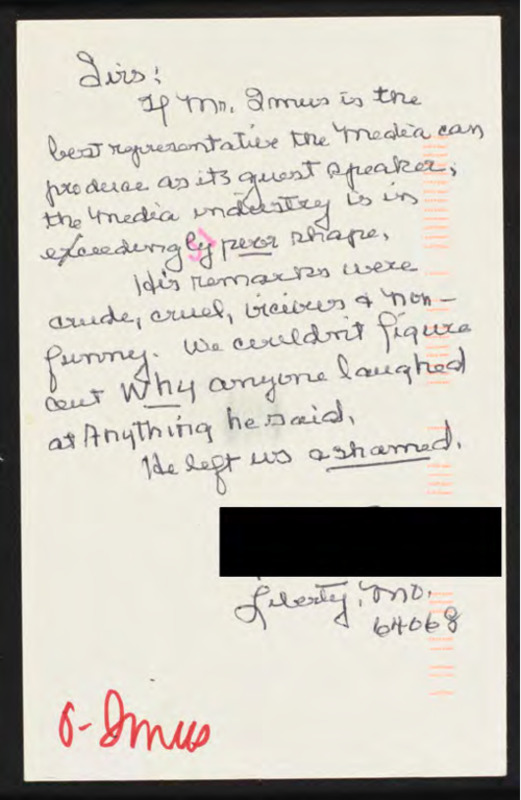 Sirs:
If Mr. Imus is the
best representative the Media can
produce as its guest speaker,
the Media industry is in
exceedingly poor shape.
His remarks were
crude, cruel, vicious & non-
funny. We couldn't figure
out Why anyone laughed
at Anything he said.
He left us ashamed.
Liberty, Mo.
64068
Imus